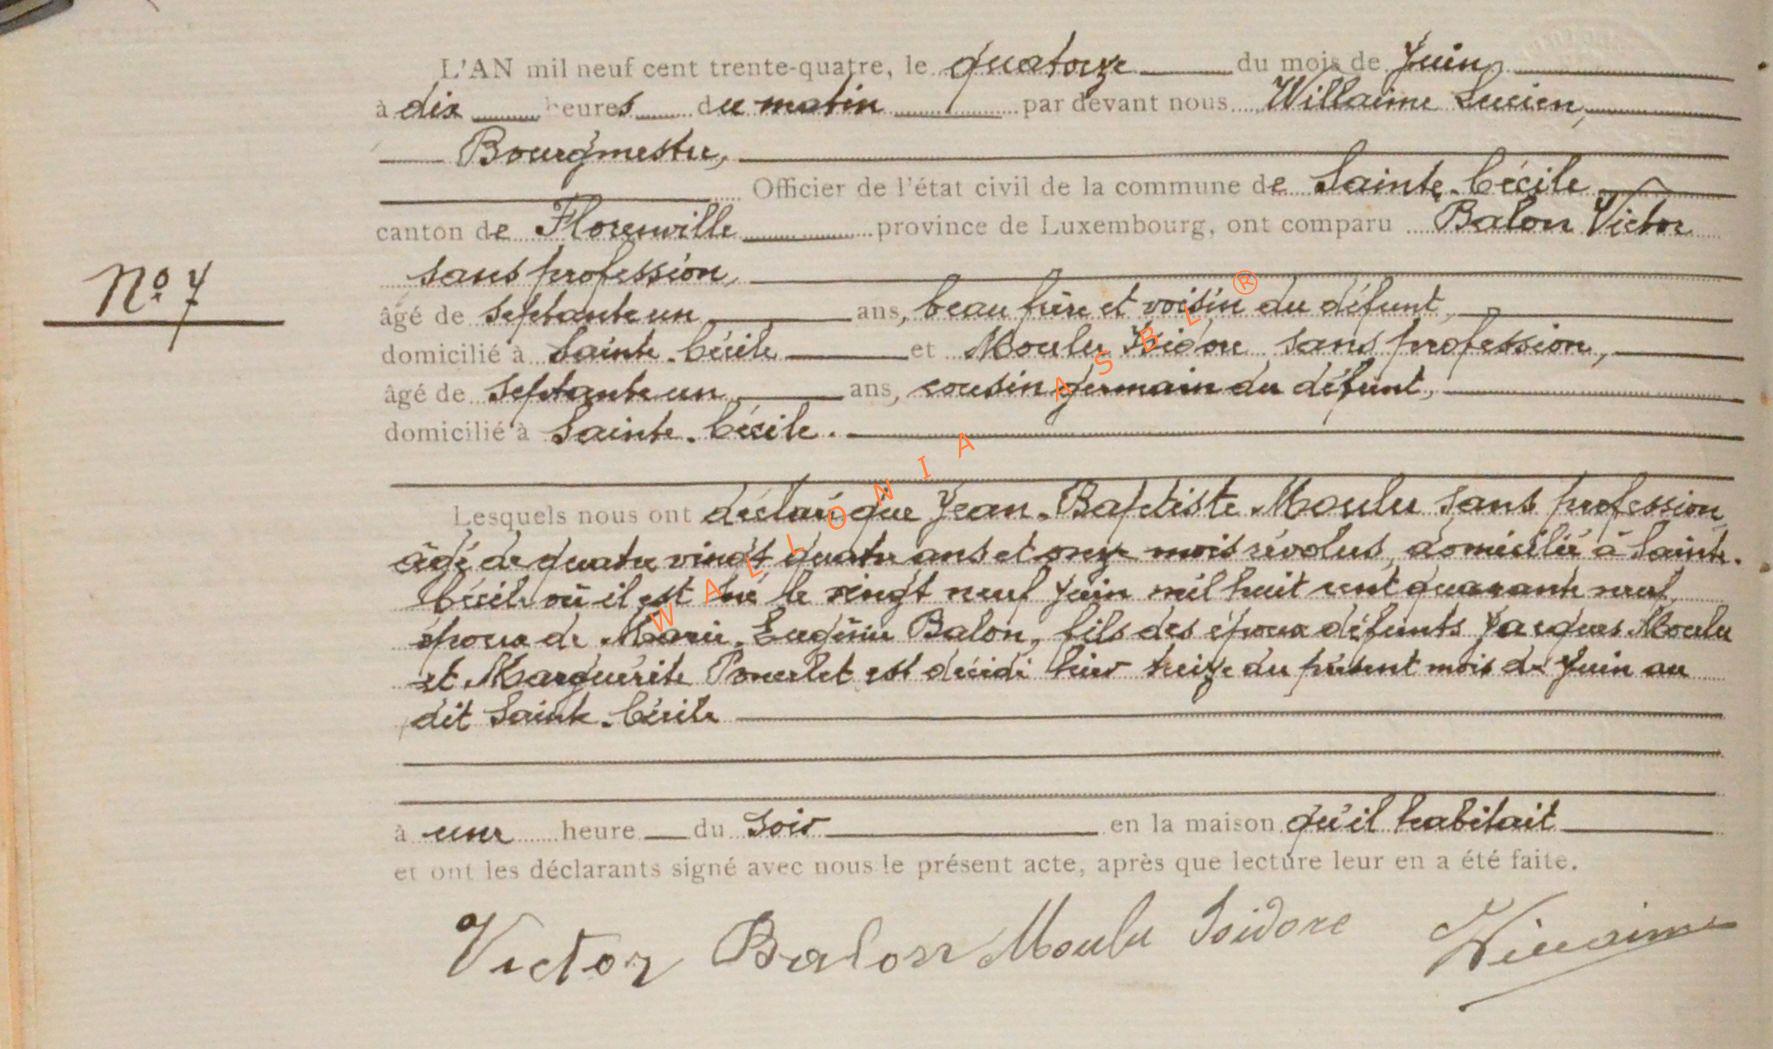 L'AN mil neuf cent trente-quatre, le quatorze du mois de Juin
à dix heures du matin par devant nous Willaime Lucien,
Bourgmestre,
Officier de l'état civil de la commune de Sainte-Cécile
canton de Florenville province de Luxembourg, ont comparu Balon Victor
sans profession,
âgé de septante un ans, beau frère et voisin du défunt,
domicilié à Sainte-Cécile et Moulu Isidore sans profession,
N° 7
âgé de septante un ans, cousin germain du défunt,
domicilié à Sainte-Cécile.
Lesquels nous ont déclaré que Jean-Baptiste Moulu sans profession
âgé de quatre vingt quatre ans et onze mois révolus, domicilié à Sainte-
Cécile où il est né le vingt neuf Juin mil huit cent quarante neuf,
époux de Marie-Eugénie Balon, fils des époux défunts Jacques Moulu
et Marguerite Poncelet est décédé hier treize du présent mois de Juin au
dit Sainte-Cécile
à une heure du soir en la maison qu'il habitait
et ont les déclarants signé avec nous le présent acte, après que lecture leur en a été faite.
Victor Balon Moulu Isidore Willaime
WALLONIA ASBL ®